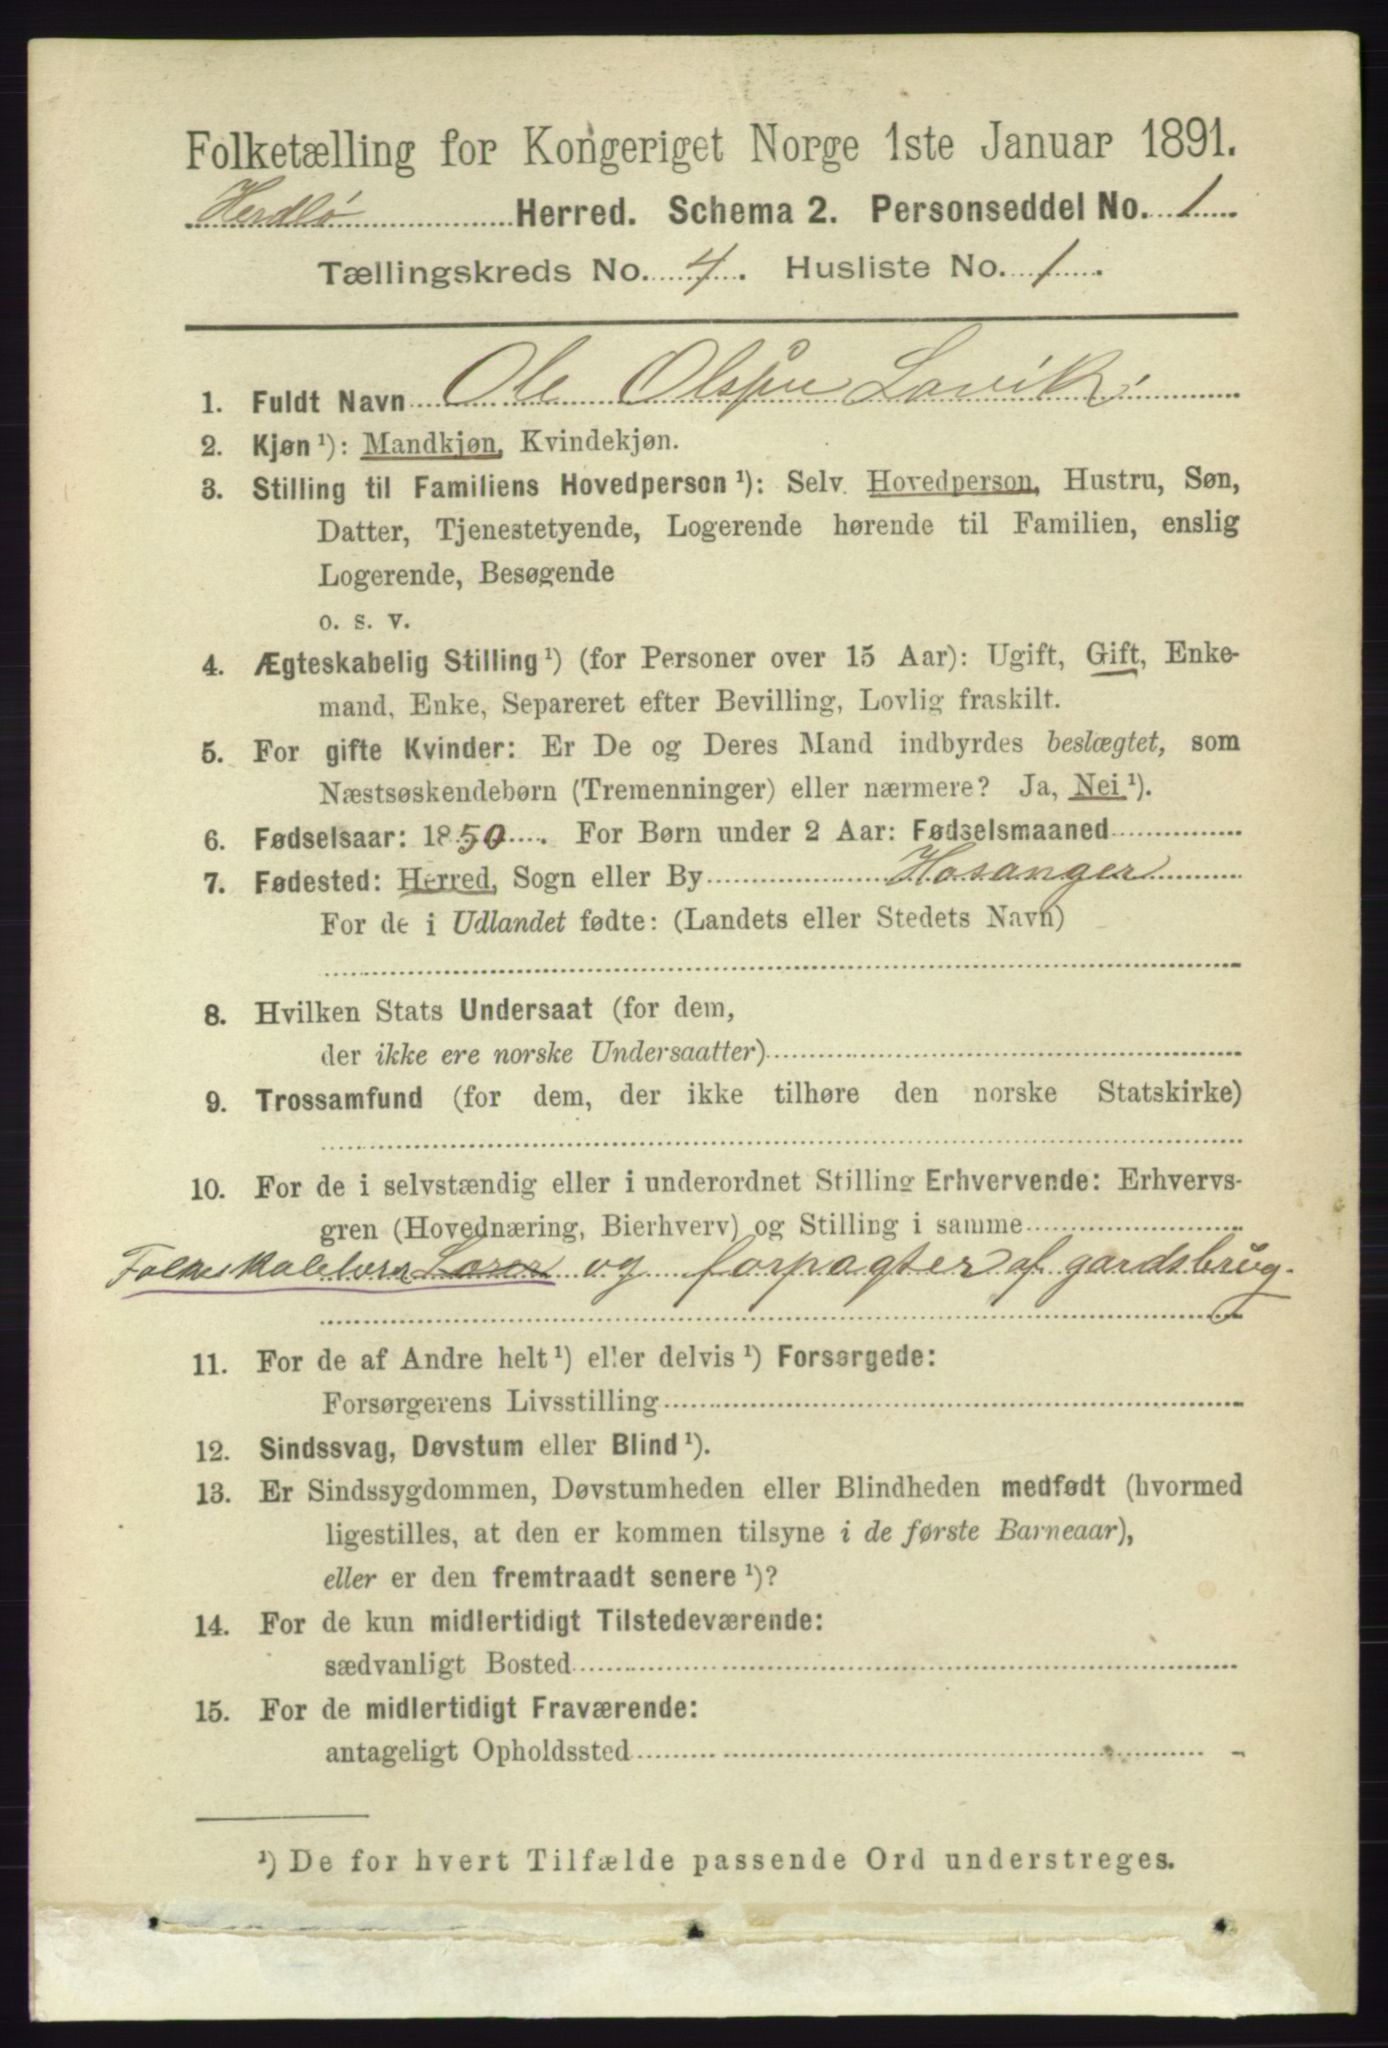 Folketælling for Kongeriget Norge 1ste Januar 1891.
Herdlø Herred. Schema 2. Personseddel No. 1
Tællingskreds No. 4. Husliste No. 1.
1. Fuldt Navn Ole Olsen Lavik
2. Kjøn ¹): Mandkjøn, Kvindekjøn.
3. Stilling til Familiens Hovedperson ¹): Selv Hovedperson, Hustru, Søn,
Datter, Tjenestetyende, Logerende hørende til Familien, enslig
Logerende, Besøgende
o. s. v.
4. Ægteskabelig Stilling ¹) (for Personer over 15 Aar): Ugift, Gift, Enke-
mand, Enke, Separeret efter Bevilling, Lovlig fraskilt.
5. For gifte Kvinder: Er De og Deres Mand indbyrdes beslægtet, som
Næstsøskendebørn (Tremenninger) eller nærmere? Ja, Nei ¹).
6. Fødselsaar: 1850. For Børn under 2 Aar: Fødselsmaaned
7. Fødested: Herred, Sogn eller By Hosanger
For de i Udlandet fødte: (Landets eller Stedets Navn)
8. Hvilken Stats Undersaat (for dem,
der ikke ere norske Undersaatter)
9. Trossamfund (for dem, der ikke tilhøre den norske Statskirke)
10. For de i selvstændig eller i underordnet Stilling Erhvervende: Erhvervs-
gren (Hovednæring, Bierhverv) og Stilling i samme
Folkeskolelærer Lærer og forpagter af gardsbrug.
11. For de af Andre helt ¹) eller delvis ¹) Forsørgede:
Forsørgerens Livsstilling
12. Sindssvag, Døvstum eller Blind ¹).
13. Er Sindssygdommen, Døvstumheden eller Blindheden medfødt (hvormed
ligestilles, at den er kommen tilsyne i de første Barneaar),
eller er den fremtraadt senere ¹)?
14. For de kun midlertidigt Tilstedeværende:
sædvanligt Bosted
15. For de midlertidigt Fraværende:
antageligt Opholdssted
¹) De for hvert Tilfælde passende Ord understreges.